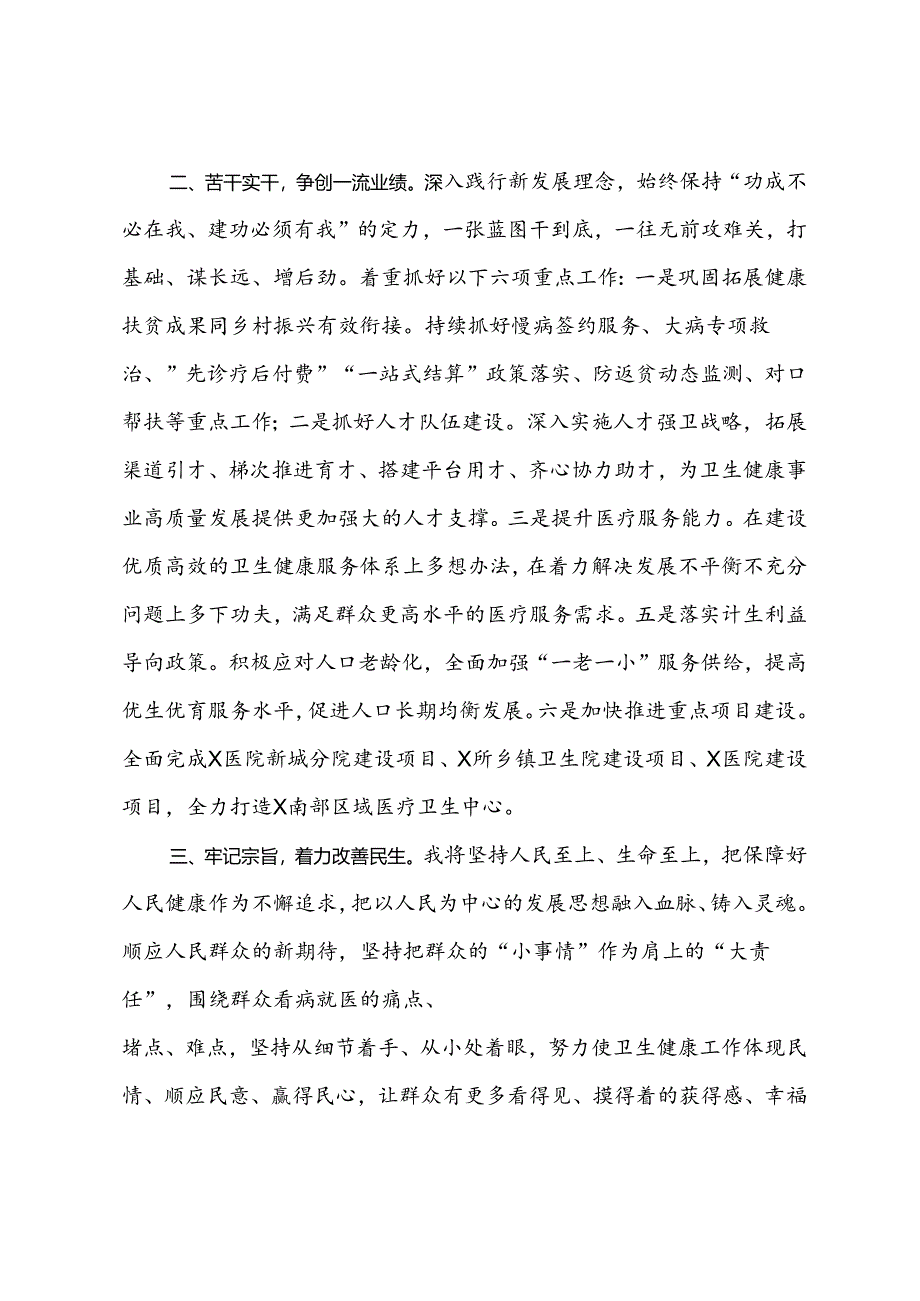 二、苦干实干，争创一流业绩。深入践行新发展理念，始终保持“功成不
必在我、建功必须有我”的定力，一张蓝图干到底，一往无前攻难关，打
基础、谋长远、增后劲。着重抓好以下六项重点工作：一是巩固拓展健康
扶贫成果同乡村振兴有效衔接。持续抓好慢病签约服务、大病专项救
治、”先诊疗后付费”“一站式结算”政策落实、防返贫动态监测、对口
帮扶等重点工作；二是抓好人才队伍建设。深入实施人才强卫战略，拓展
渠道引才、梯次推进育才、搭建平台用才、齐心协力助才，为卫生健康事
业高质量发展提供更加强大的人才支撑。三是提升医疗服务能力。在建设
优质高效的卫生健康服务体系上多想办法，在着力解决发展不平衡不充分
问题上多下功夫，满足群众更高水平的医疗服务需求。五是落实计生利益
导向政策。积极应对人口老龄化，全面加强“一老一小”服务供给，提高
优生优育服务水平，促进人口长期均衡发展。六是加快推进重点项目建设。
全面完成X医院新城分院建设项目、X所乡镇卫生院建设项目、X医院建设
项目，全力打造X南部区域医疗卫生中心。
三、牢记宗旨，着力改善民生。我将坚持人民至上、生命至上，把保障好
人民健康作为不懈追求，把以人民为中心的发展思想融入血脉、铸入灵魂。
顺应人民群众的新期待，坚持把群众的“小事情”作为肩上的“大责
任”，围绕群众看病就医的痛点、
堵点、难点，坚持从细节着手、从小处着眼，努力使卫生健康工作体现民
情、顺应民意、赢得民心，让群众有更多看得见、摸得着的获得感、幸福